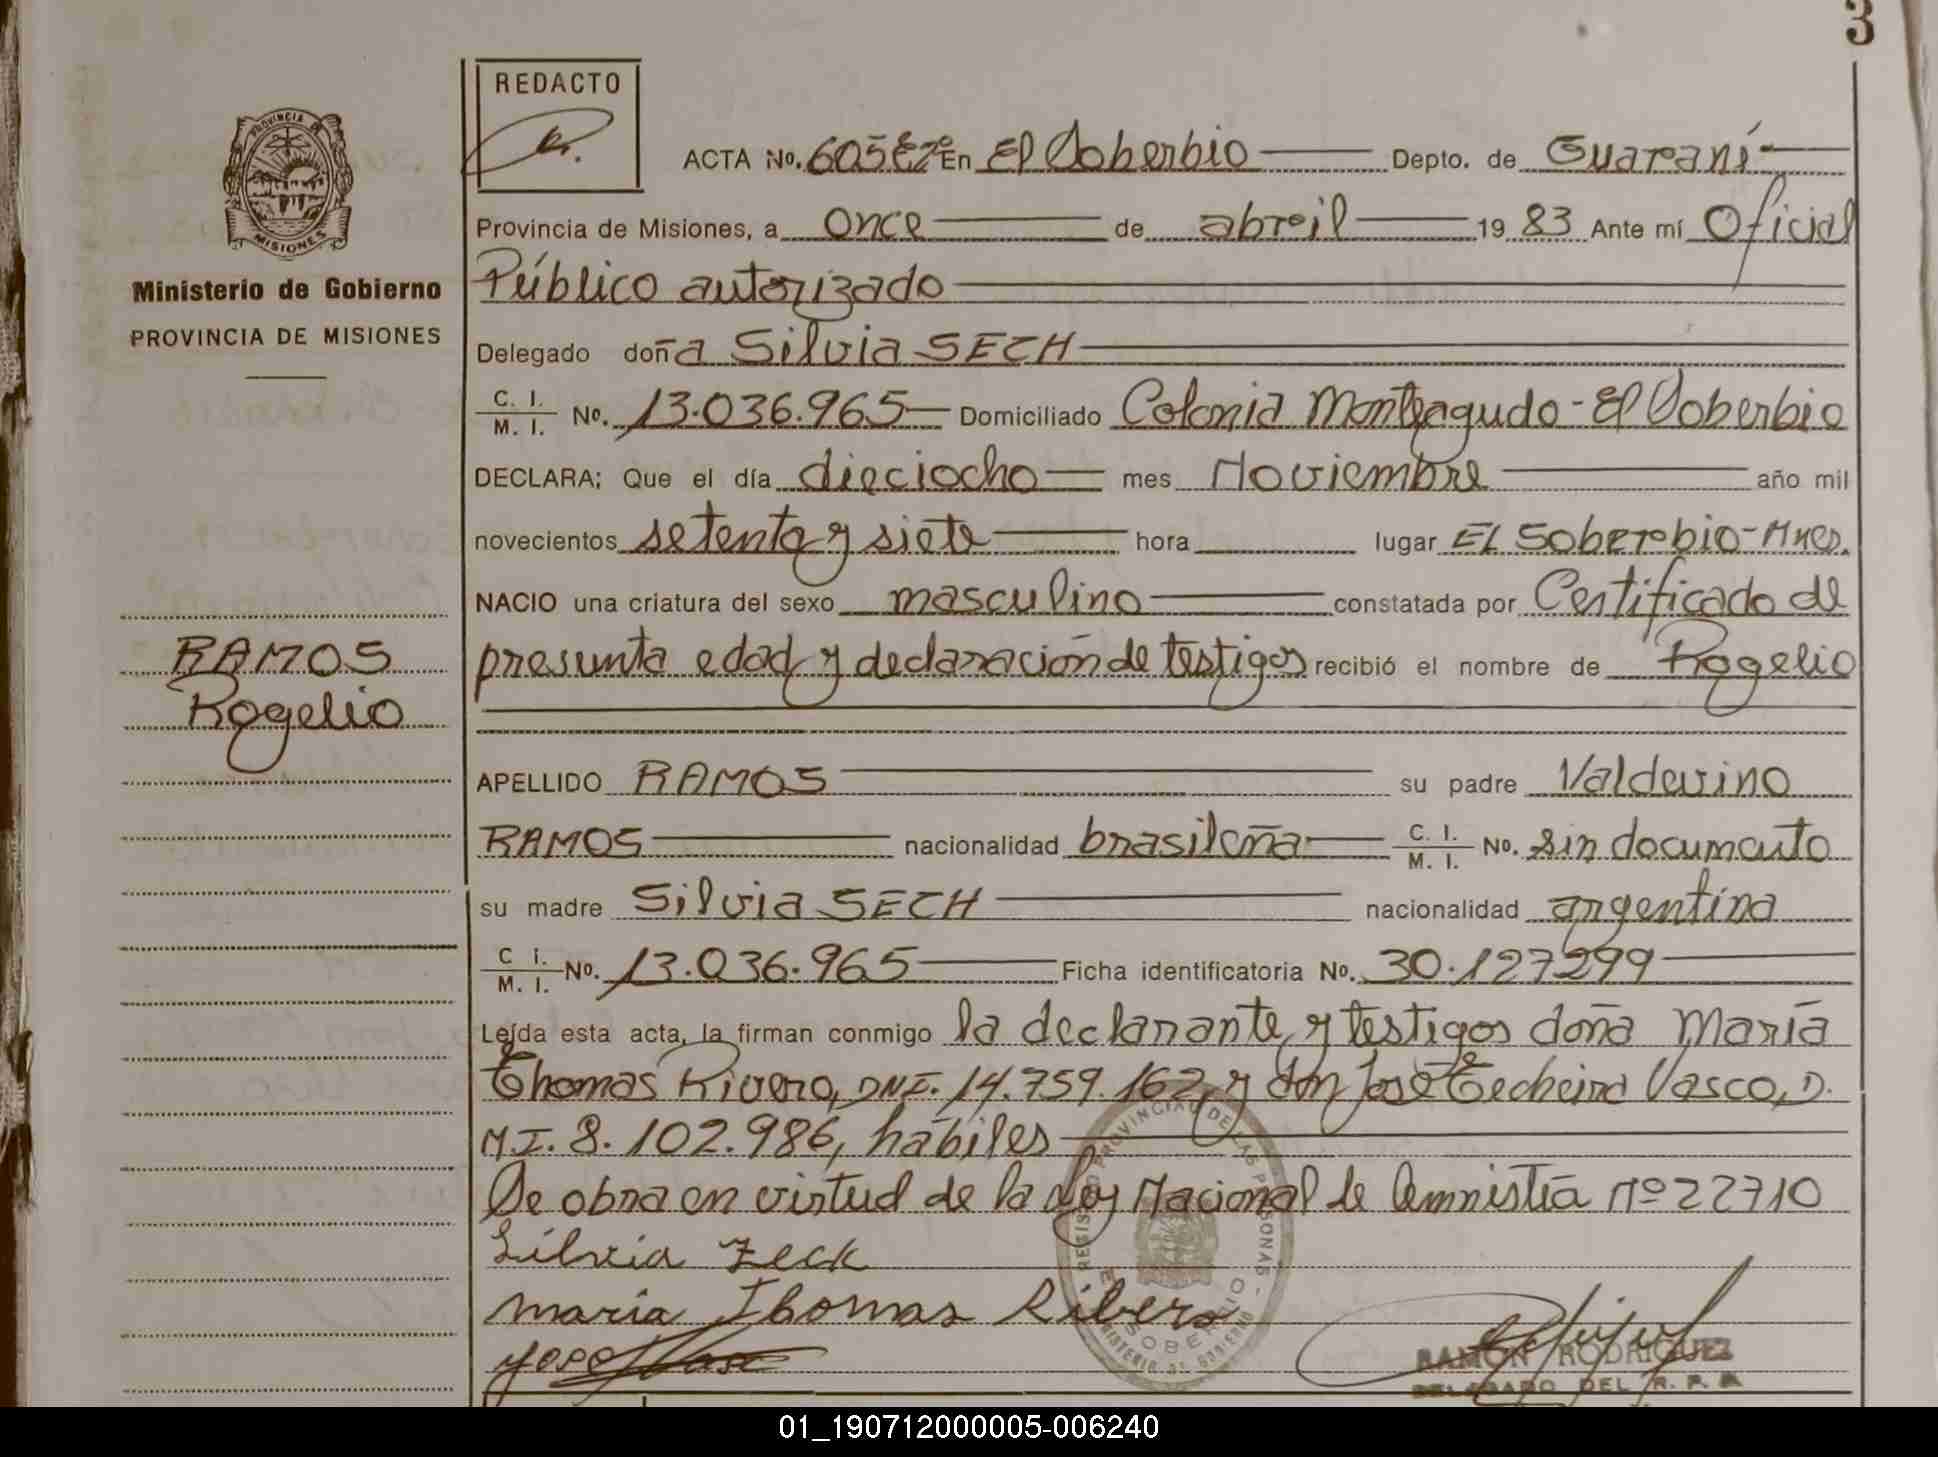 3
REDACTO
PROVINCIA DE
MISIONES
Ministerio de Gobierno
PROVINCIA DE MISIONES
RAMOS
Rogelio
ACTA No. 605 En El Soberbio Depto. de Guaraní
Provincia de Misiones, a once de abril 19 83 Ante mí Oficial
Público autorizado
Delegado doña Silvia SECH
C. I. M. I. No. 13.036.965 Domiciliado Colonia Monteagudo - El Soberbio
DECLARA; Que el día dieciocho mes Noviembre año mil
novecientos setenta y siete hora lugar EL Soberbio - Mnes.
NACIO una criatura del sexo masculino constatada por Certificado de
presunta edad y declaración de testigos recibió el nombre de Rogelio
APELLIDO RAMOS su padre Valdevino
RAMOS nacionalidad brasileña C. I. M. I. No. sin documento
su madre Silvia SECH nacionalidad argentina
C I. M. I. No. 13.036.965 Ficha identificatoria No. 30.127.299
Leída esta acta, la firman conmigo la declarante y testigos doña María
Thomas Rivero, DNI. 14.759.162, y don José Techeira Vasco, D.
N.I. 8.102.986, hábiles
Se obra en virtud de la Ley Nacional de Amnistía Nº 22710
Silvia Zeck
maria Thomas Ribero
REGISTRO PROVINCIAL DE LAS PERSONAS
EL SOBERBIO
MINISTERIO DE GOBIERNO
RAMON RODRIGUEZ
DELEGADO DEL R. P. P.
01_190712000005-006240